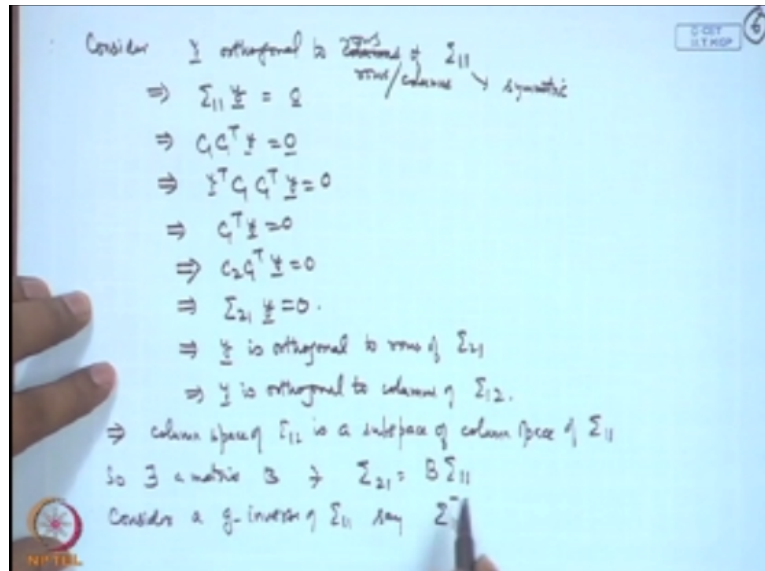 Consider y orthogonal to rows/columns of Σ11 → symmetric
⇒ Σ11 y = 0
⇒ C1 C1^T y = 0
⇒ y^T C1 C1^T y = 0
⇒ C1^T y = 0
⇒ C2 C1^T y = 0
⇒ Σ21 y = 0.
⇒ y is orthogonal to rows of Σ21
⇒ y is orthogonal to columns of Σ12.
⇒ column space of Σ12 is a subspace of column space of Σ11
So ∃ a matrix B ∋ Σ21 = B Σ11
Consider a g-inverse of Σ11 say Σ
6
I.I.T. KGP
NPTEL